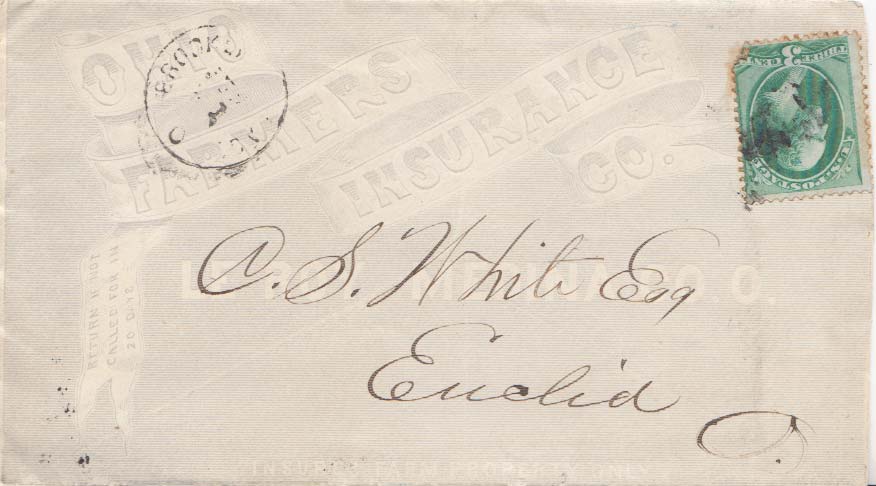 OHIO
FARMERS
INSURANCE
CO.
BROOKLYN
O
THREE 3 CENTS
U.S. POSTAGE
RETURN IF NOT
CALLED FOR IN
20 DAYS
C. S. White Esq
Euclid
O.
O.
INSURES FARM PROPERTY ONLY